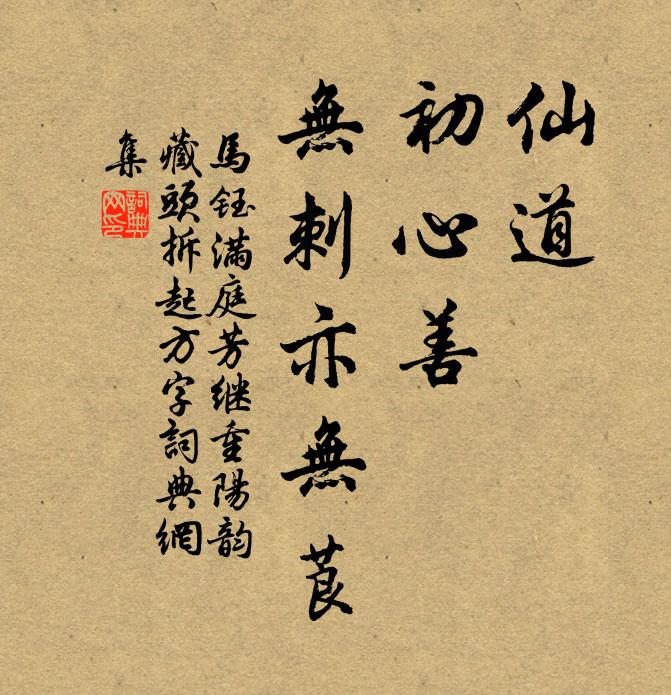 仙道
初心善
無刺亦無莨
馬鈺滿庭芳继重陽韵
藏頭拆起方字詞典網
集
詞典網印